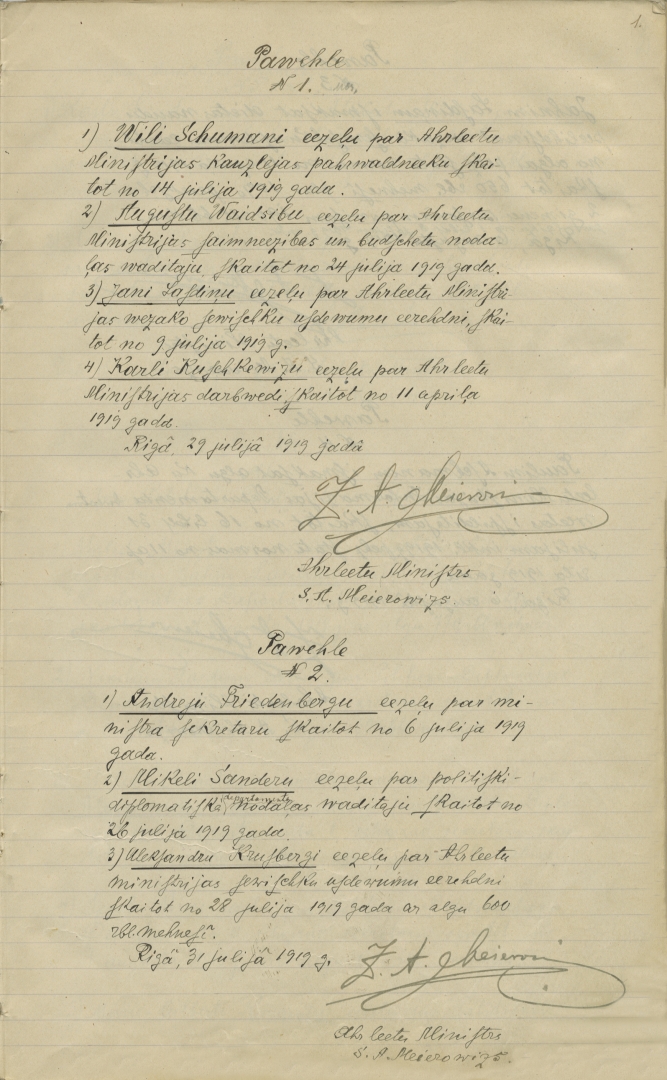 1.
Pawehle
N 1.
1) Wili Schumani eezeļu par Ahrleetu
Ministrijas Kanzlejas pahrwaldneeku skai-
tot no 14 julija 1919 gada.
2) Augustu Waidsibu eezeļu par Ahrleetu
Ministrijas saimneezibas un budschetu noda-
ļas waditaju, skaitot no 24 julija 1919 gada.
3) Jani Lasdinu eezeļu par Ahrleetu Ministri-
jas wezako sewischku usdewumu eerehdni, skai-
tot no 9 julija 1919 g.
4) Karli Kuschkewizu eezeļu par Ahrleetu
Ministrijas darbwedi skaitot no 11 apriļa
1919 gada.
Rigâ, 29 julijâ 1919 gadâ
Z. A. Meierowi
Ahrleetu Ministrs
S. A. Meierowizs.
Pawehle
N 2.
1) Andreju Friedenbergu eezeļu par mi-
nistra sekretaru skaitot no 6 julija 1919
gada.
2) Mikeli Sanderu eezeļu par politiski-
diplomatiskâ (departamenta) nodaļas waditaju skaitot no
26 julija 1919 gada.
3) Aleksandru Krusbergi eezeļu par Ahrleetu
ministrijas sewischku usdewumu eerehdni
skaitot no 28 julija 1919 gada ar algu 600
rbl. mehnesî.
Rigâ, 31 julijâ 1919 g.
Z. A. Meierowi
Ahrleetu Ministrs
S. A. Meierowizs.